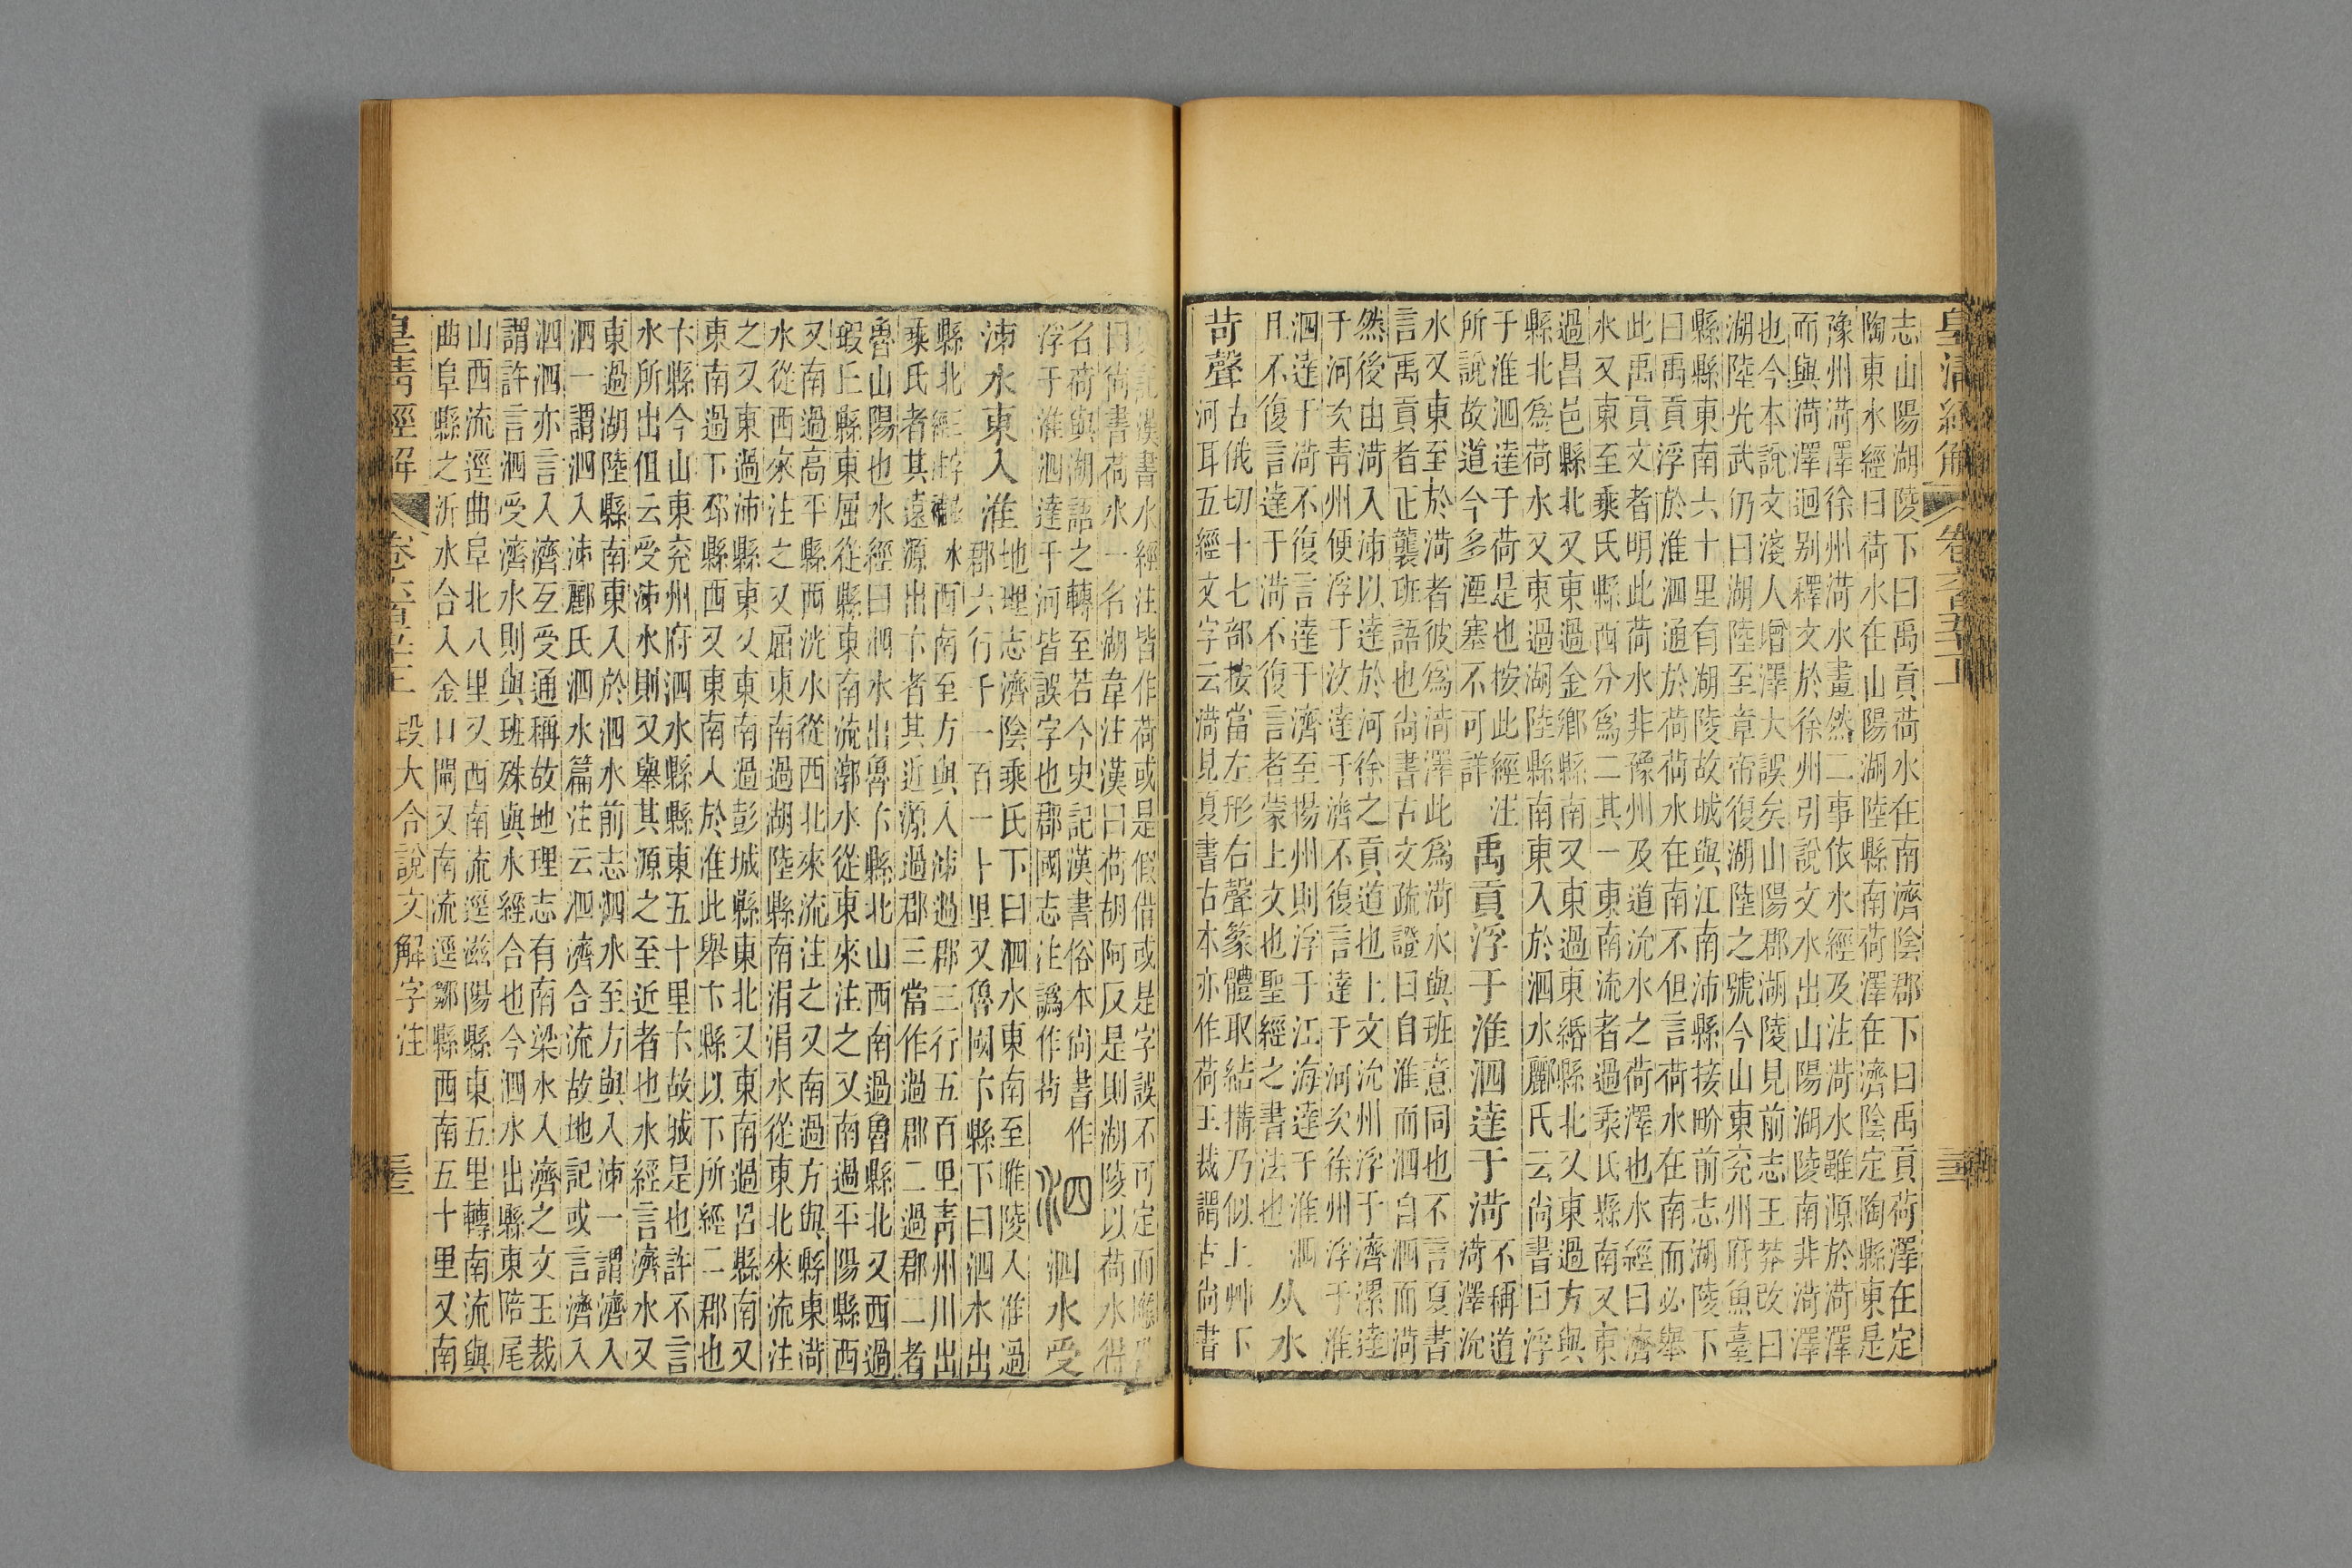 志山陽湖陵下曰禹貢荷水在南濟陰郡下曰禹貢荷澤在定
陶東水經曰荷水在山陽湖陸縣南荷澤在濟陰定陶縣東是
豫州渮澤徐州渮水畫然二事依水經及注渮水雖源於渮澤
而與渮澤迥别釋文於徐州引說文水出山陽湖陵南非渮澤
也今本說文淺人增澤大誤矣山陽郡湖陵見前志王莽改曰
湖陸光武仍曰湖陸至章帝復湖陸之號今山東兖州府魚臺
縣縣東南六十里有湖陵故城與江南沛縣接畍前志湖陵下
曰禹貢浮於淮泗通於荷荷水在南不但言荷水在南而必舉
此禹貢文者明此荷水非豫州及道沇水之荷澤也水經曰濟
水又東至乘氏縣西分爲二其一東南流者過乘氏縣南又東
過昌邑縣北又東過金鄉縣南又東過東緡縣北又東過方與
縣北爲荷水又東過湖陸縣南東入於泗水酈氏云尚書曰浮
于淮泗達于荷是也按此經注
所說故道今多湮塞不可詳
禹貢浮于淮泗達于渮
不稱道
渮澤沇
水又東至於渮者彼爲渮澤此爲渮水與班意同也不言夏書
言禹貢者正襲班語也尚書古文疏證曰自淮而泗自泗而渮
然後由渮入沛以達於河徐之貢道也上文沇州浮于濟漯達
于河次青州便浮于汶達于濟不復言達于河次徐州浮于淮
泗達于渮不復言達于濟至揚州則浮于江海達于淮泗
且不復言達于渮不復言者蒙上文也聖經之書法也
从水
苛聲
古俄切十七部按當左形右聲篆體取結構乃似上艸下
河耳五經文字云渮見夏書古本亦作荷玉裁謂古尚書
史記漢書水經注皆作荷或是假借或是字誤不可定而應
曰尚書荷水一名湖韋注漢曰荷胡阿反是則湖陵以荷水得
名荷與湖語之轉至若今史記漢書俗本尚書作
浮于淮泗達于河皆誤字也郡國志注譌作苟
泗
泗水受
泲水東入淮
地理志濟陰乘氏下曰泗水東南至睢陵入淮過
郡六行千一百一十里又魯國卞縣下曰泗水出
縣北
西南至方與入沛過郡三行五百里青州川出
乘氏者其遠源出卞者其近源過郡三當作過郡二過郡二者
魯山陽也水經曰泗水出魯卞縣北山西南過魯縣北又西過
瑕丘縣東屈從縣東南流漷水從東來注之又南過平陽縣西
又南過高平縣西洸水從西北來流注之又南過方與縣東渮
水從西來注之又屈東南過湖陸縣南涓涓水從東北來流注
之又東過沛縣東又東南過彭城縣東北又東南過呂縣南又
東南過下邳縣西又東南入於淮此舉卞縣以下所經二郡也
卞縣今山東兖州府泗水縣縣東五十里卞故城是也許不言
水所出但云受泲水則又舉其源之至近者也水經言濟水又
東過湖陸縣南東入於泗水前志泗水至方與入泲一謂濟入
泗一謂泗入泲酈氏泗水篇注云泗濟合流故地記或言濟入
泗泗亦言入濟互受通稱故地理志有南梁水入濟之文玉裁
謂許言泗受濟水則與班殊與水經合也今泗水出縣東陪尾
山西流逕曲阜北八里又西南流逕滋陽縣東五里轉南流與
曲阜縣之沂水合入金口閘又南流逕鄒縣西南五十里又南
皇清經解
段大令說文解字注
皇清經解